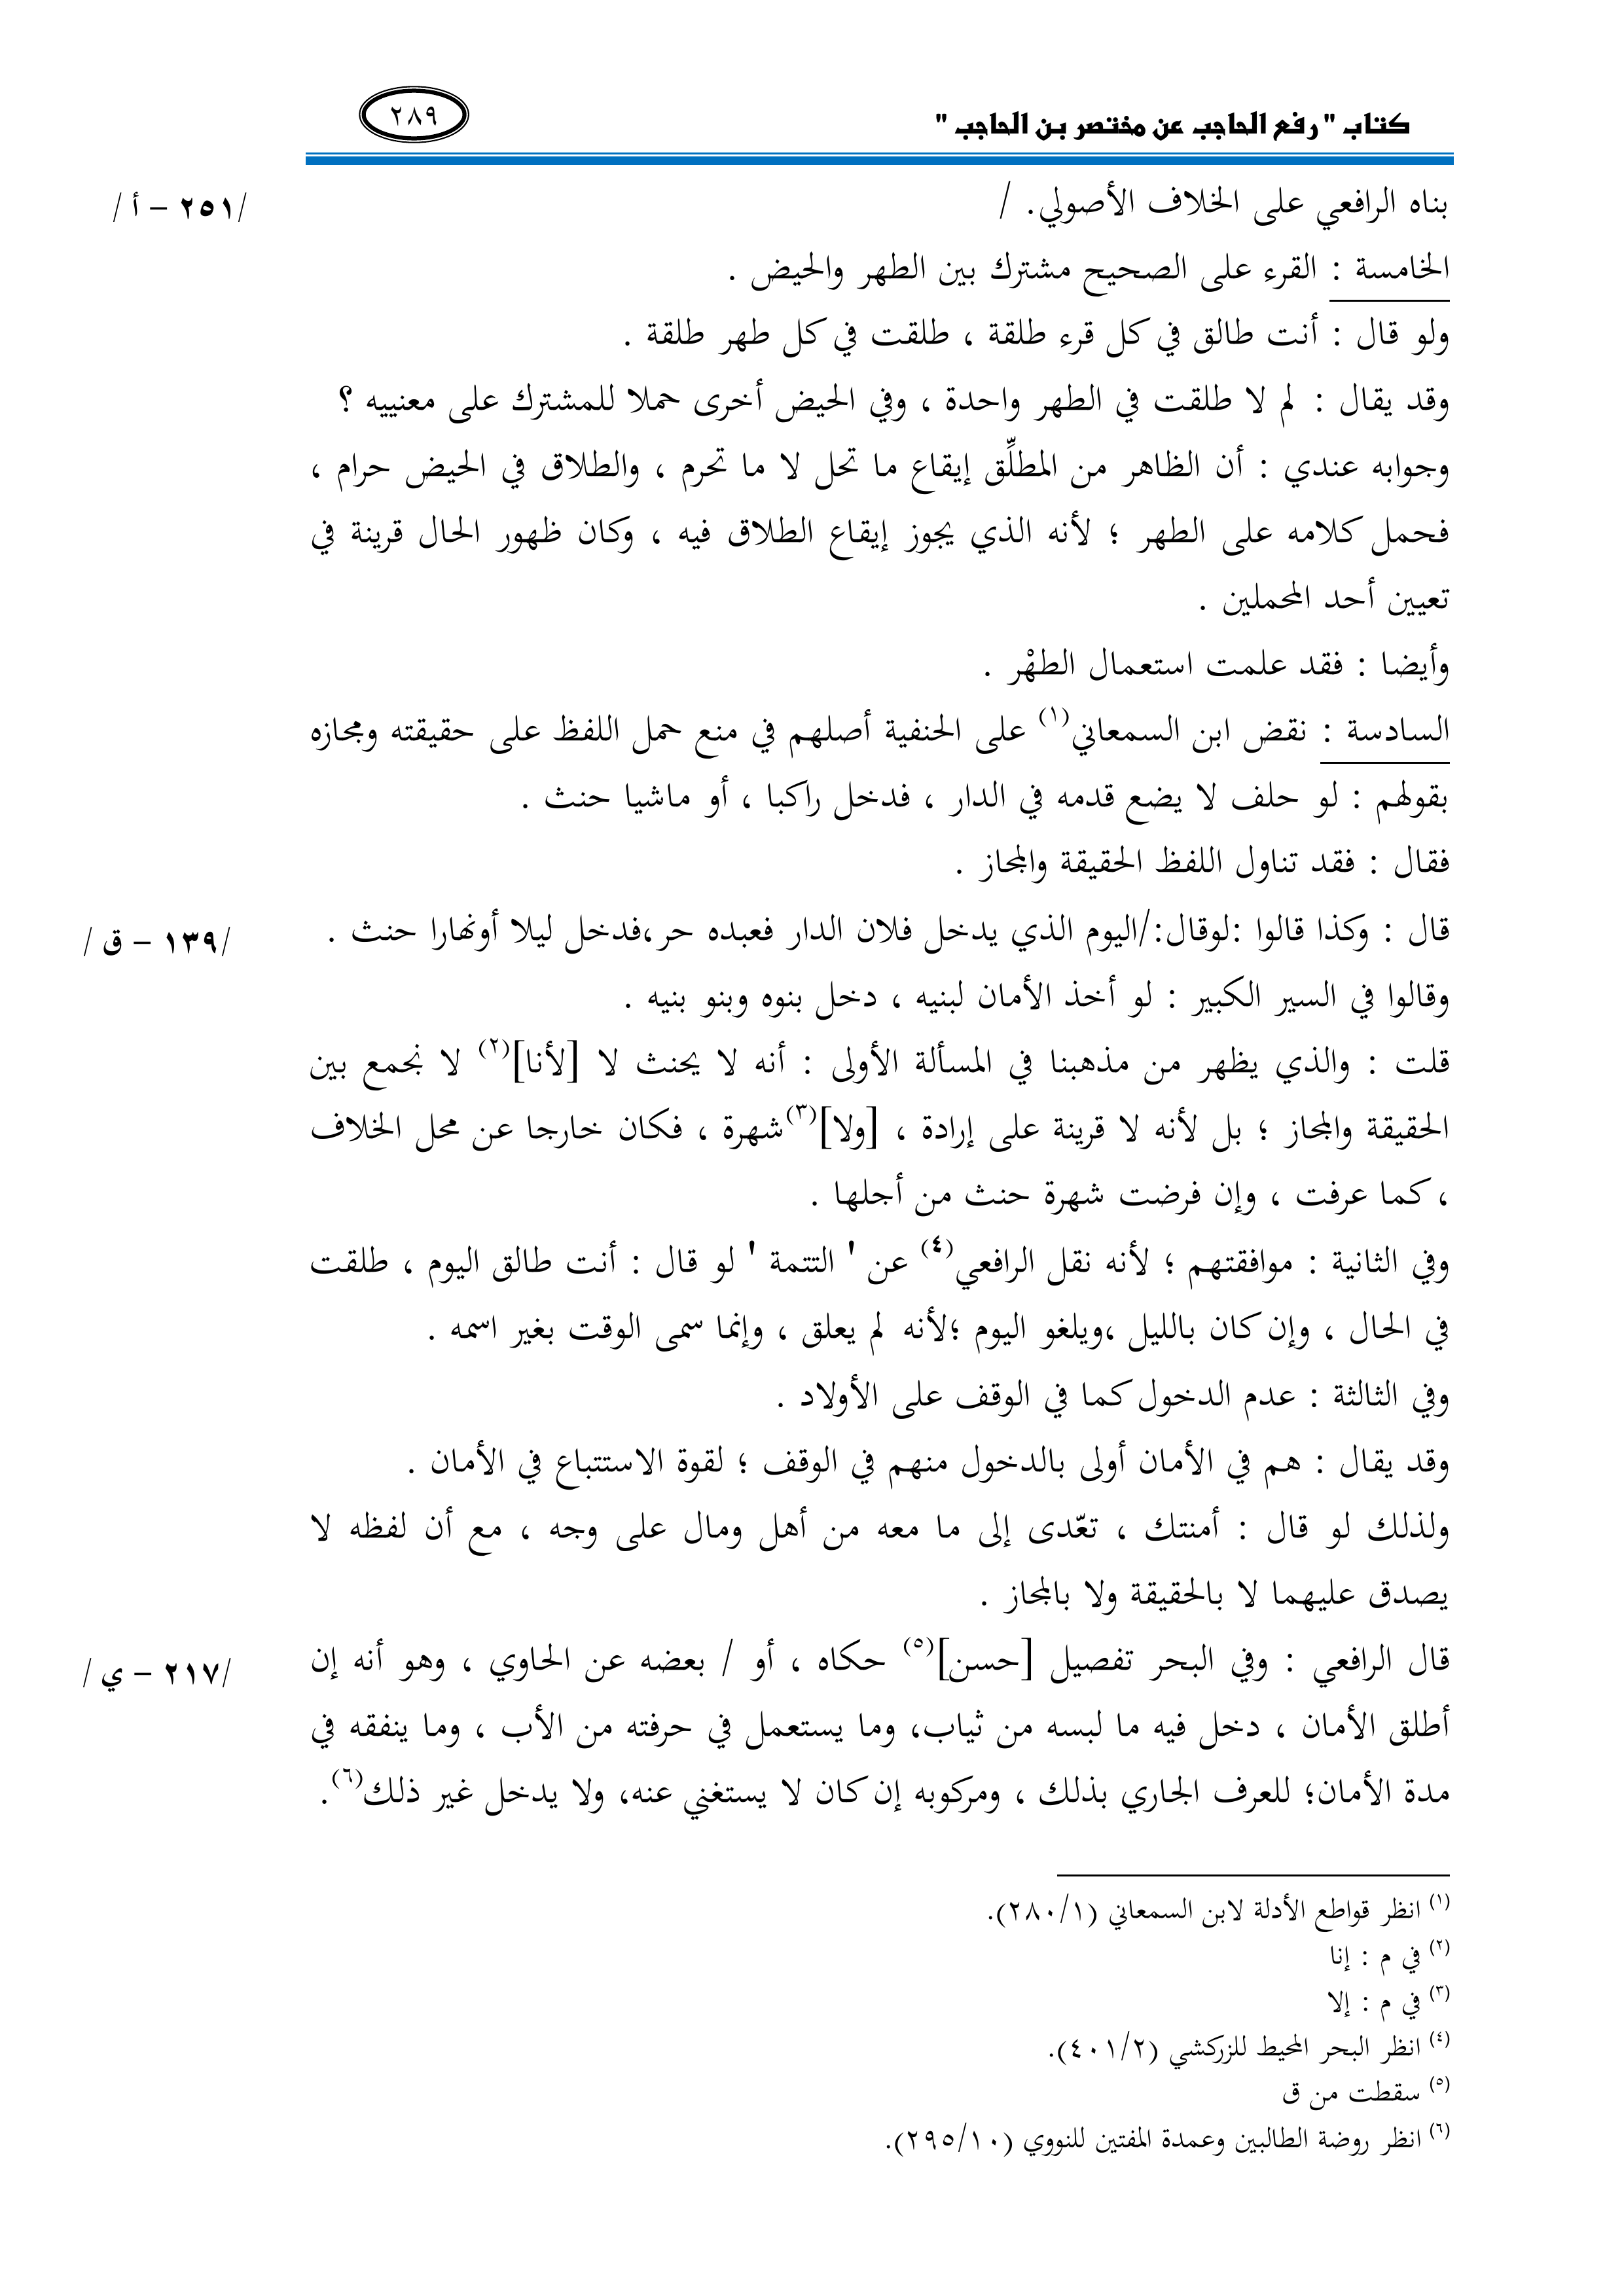 كتاب " رفع الحاجب عن مختصر بن الحاجب "
٢٨٩
بناه الرافعي على الخلاف الأصولي. /
/٢٥١ – أ /
الخامسة : القرء على الصحيح مشترك بين الطهر والحيض .
ولو قال : أنت طالق في كل قرء طلقة ، طلقت في كل طهر طلقة .
وقد يقال : لم لا طلقت في الطهر واحدة ، وفي الحيض أخرى حملا للمشترك على معنييه ؟
وجوابه عندي : أن الظاهر من المطلِّق إيقاع ما تحل لا ما تحرم ، والطلاق في الحيض حرام ،
فحمل كلامه على الطهر ؛ لأنه الذي يجوز إيقاع الطلاق فيه ، وكان ظهور الحال قرينة في
تعيين أحد المحملين .
وأيضا : فقد علمت استعمال الطهْر .
السادسة : نقض ابن السمعاني(١) على الحنفية أصلهم في منع حمل اللفظ على حقيقته ومجازه
بقولهم : لو حلف لا يضع قدمه في الدار ، فدخل راكبا ، أو ماشيا حنث .
فقال : فقد تناول اللفظ الحقيقة والمجاز .
قال : وكذا قالوا :لوقال:/اليوم الذي يدخل فلان الدار فعبده حر،فدخل ليلا أونهارا حنث .
/١٣٩ – ق /
وقالوا في السير الكبير : لو أخذ الأمان لبنيه ، دخل بنوه وبنو بنيه .
قلت : والذي يظهر من مذهبنا في المسألة الأولى : أنه لا يحنث لا [لأنا](٢) لا نجمع بين
الحقيقة والمجاز ؛ بل لأنه لا قرينة على إرادة ، [ولا](٣)شهرة ، فكان خارجا عن محل الخلاف
، كما عرفت ، وإن فرضت شهرة حنث من أجلها .
وفي الثانية : موافقتهم ؛ لأنه نقل الرافعي(٤) عن ' التتمة ' لو قال : أنت طالق اليوم ، طلقت
في الحال ، وإن كان بالليل ،ويلغو اليوم ؛لأنه لم يعلق ، وإنما سمى الوقت بغير اسمه .
وفي الثالثة : عدم الدخول كما في الوقف على الأولاد .
وقد يقال : هم في الأمان أولى بالدخول منهم في الوقف ؛ لقوة الاستتباع في الأمان .
ولذلك لو قال : أمنتك ، تعّدى إلى ما معه من أهل ومال على وجه ، مع أن لفظه لا
يصدق عليهما لا بالحقيقة ولا بالمجاز .
قال الرافعي : وفي البحر تفصيل [حسن](٥) حكاه ، أو / بعضه عن الحاوي ، وهو أنه إن
/٢١٧ – ي /
أطلق الأمان ، دخل فيه ما لبسه من ثياب، وما يستعمل في حرفته من الأب ، وما ينفقه في
مدة الأمان؛ للعرف الجاري بذلك ، ومركوبه إن كان لا يستغني عنه، ولا يدخل غير ذلك(٦).
(١) انظر قواطع الأدلة لابن السمعاني (٢٨٠/١).
(٢) في م : إنا
(٣) في م : إلا
(٤) انظر البحر المحيط للزركشي (٤٠١/٢).
(٥) سقطت من ق
(٦) انظر روضة الطالبين وعمدة المفتين للنووي (٢٩٥/١٠).